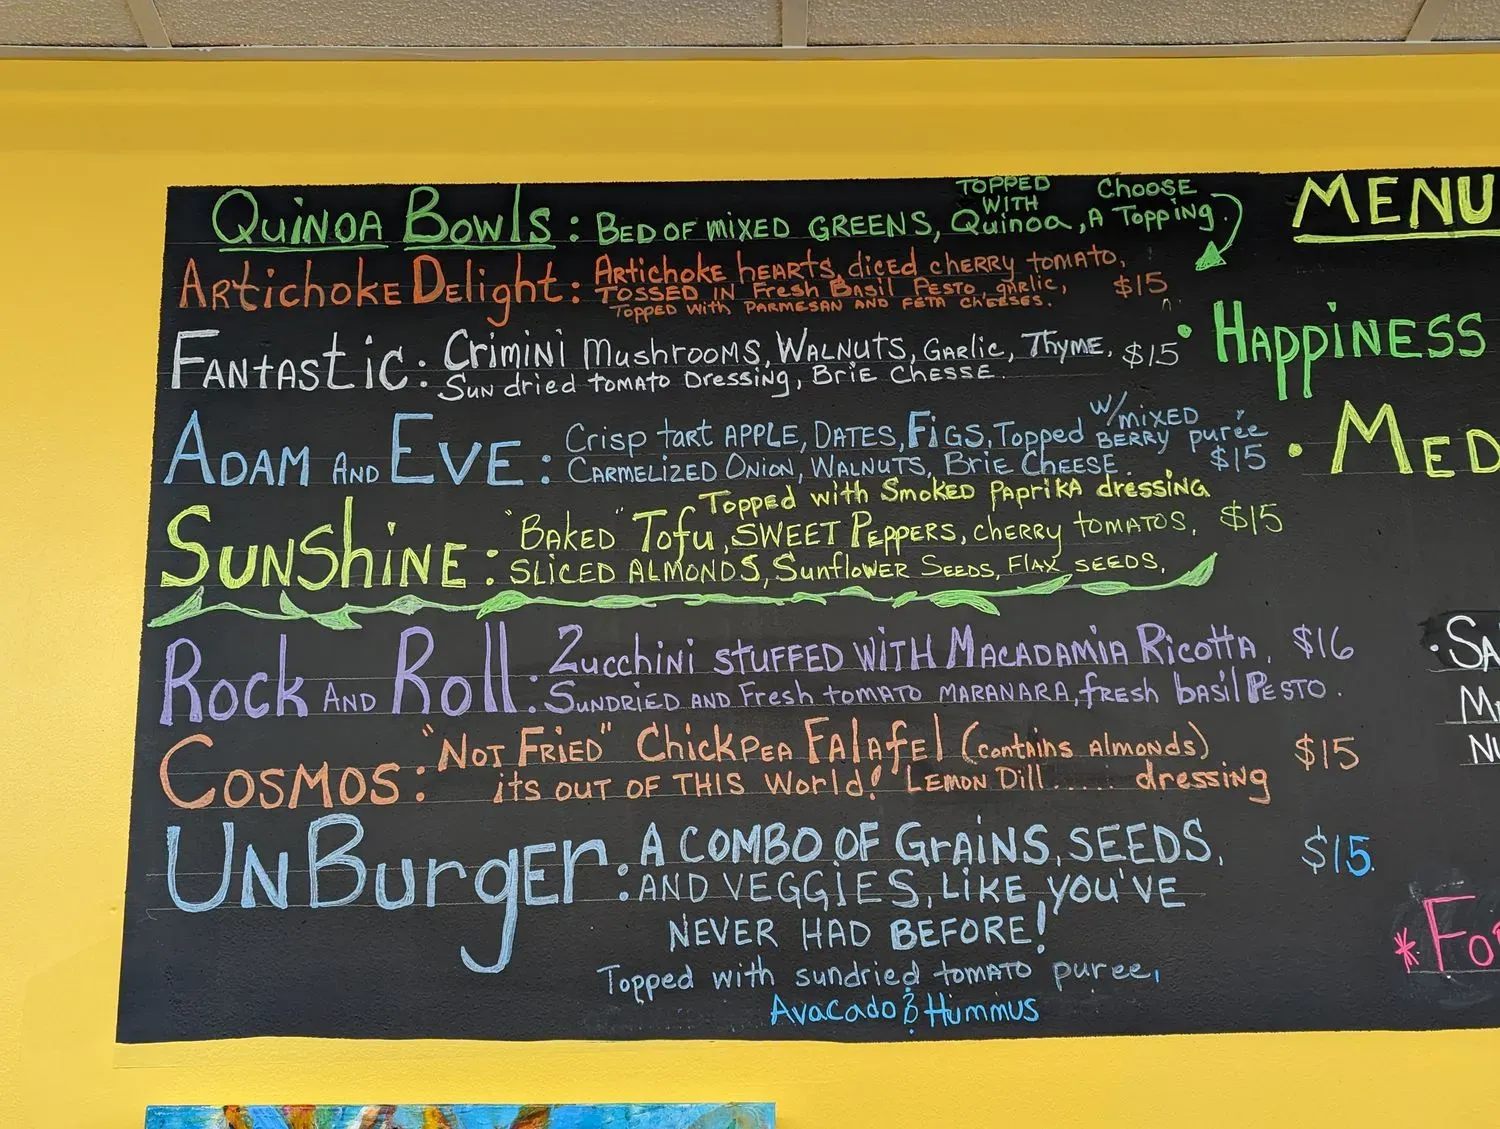 Quinoa Bowls: Bed of mixed greens, topped with Quinoa, Choose A Topping.
Artichoke Delight: Artichoke hearts, diced cherry tomato,
tossed in Fresh Basil Pesto, garlic, $15
Topped with Parmesan and feta cheeses.
Fantastic: Crimini Mushrooms, Walnuts, Garlic, Thyme, $15
Sun dried tomato Dressing, Brie Chesse
Adam and Eve: Crisp tart apple, Dates, Figs, Topped w/mixed berry purée
Carmelized Onion, Walnuts, Brie Cheese. $15
Topped with Smoked Paprika dressing
Sunshine: "Baked" Tofu, Sweet Peppers, cherry tomatos, $15
Sliced Almonds, Sunflower Seeds, Flax seeds,
Rock and Roll: Zucchini stuffed with Macadamia Ricotta, $16
Sundried and Fresh tomato maranara, fresh basil Pesto.
Cosmos: "Not Fried" Chickpea Falafel (contains almonds) $15
its out of this World! Lemon Dill..... dressing
UnBurger: A combo of Grains, seeds, $15
and veggies, like you've
never had before!
Topped with sundried tomato puree,
Avocado & Hummus
MENU
• Happiness
• Med
• Sa
Nu
*Fo